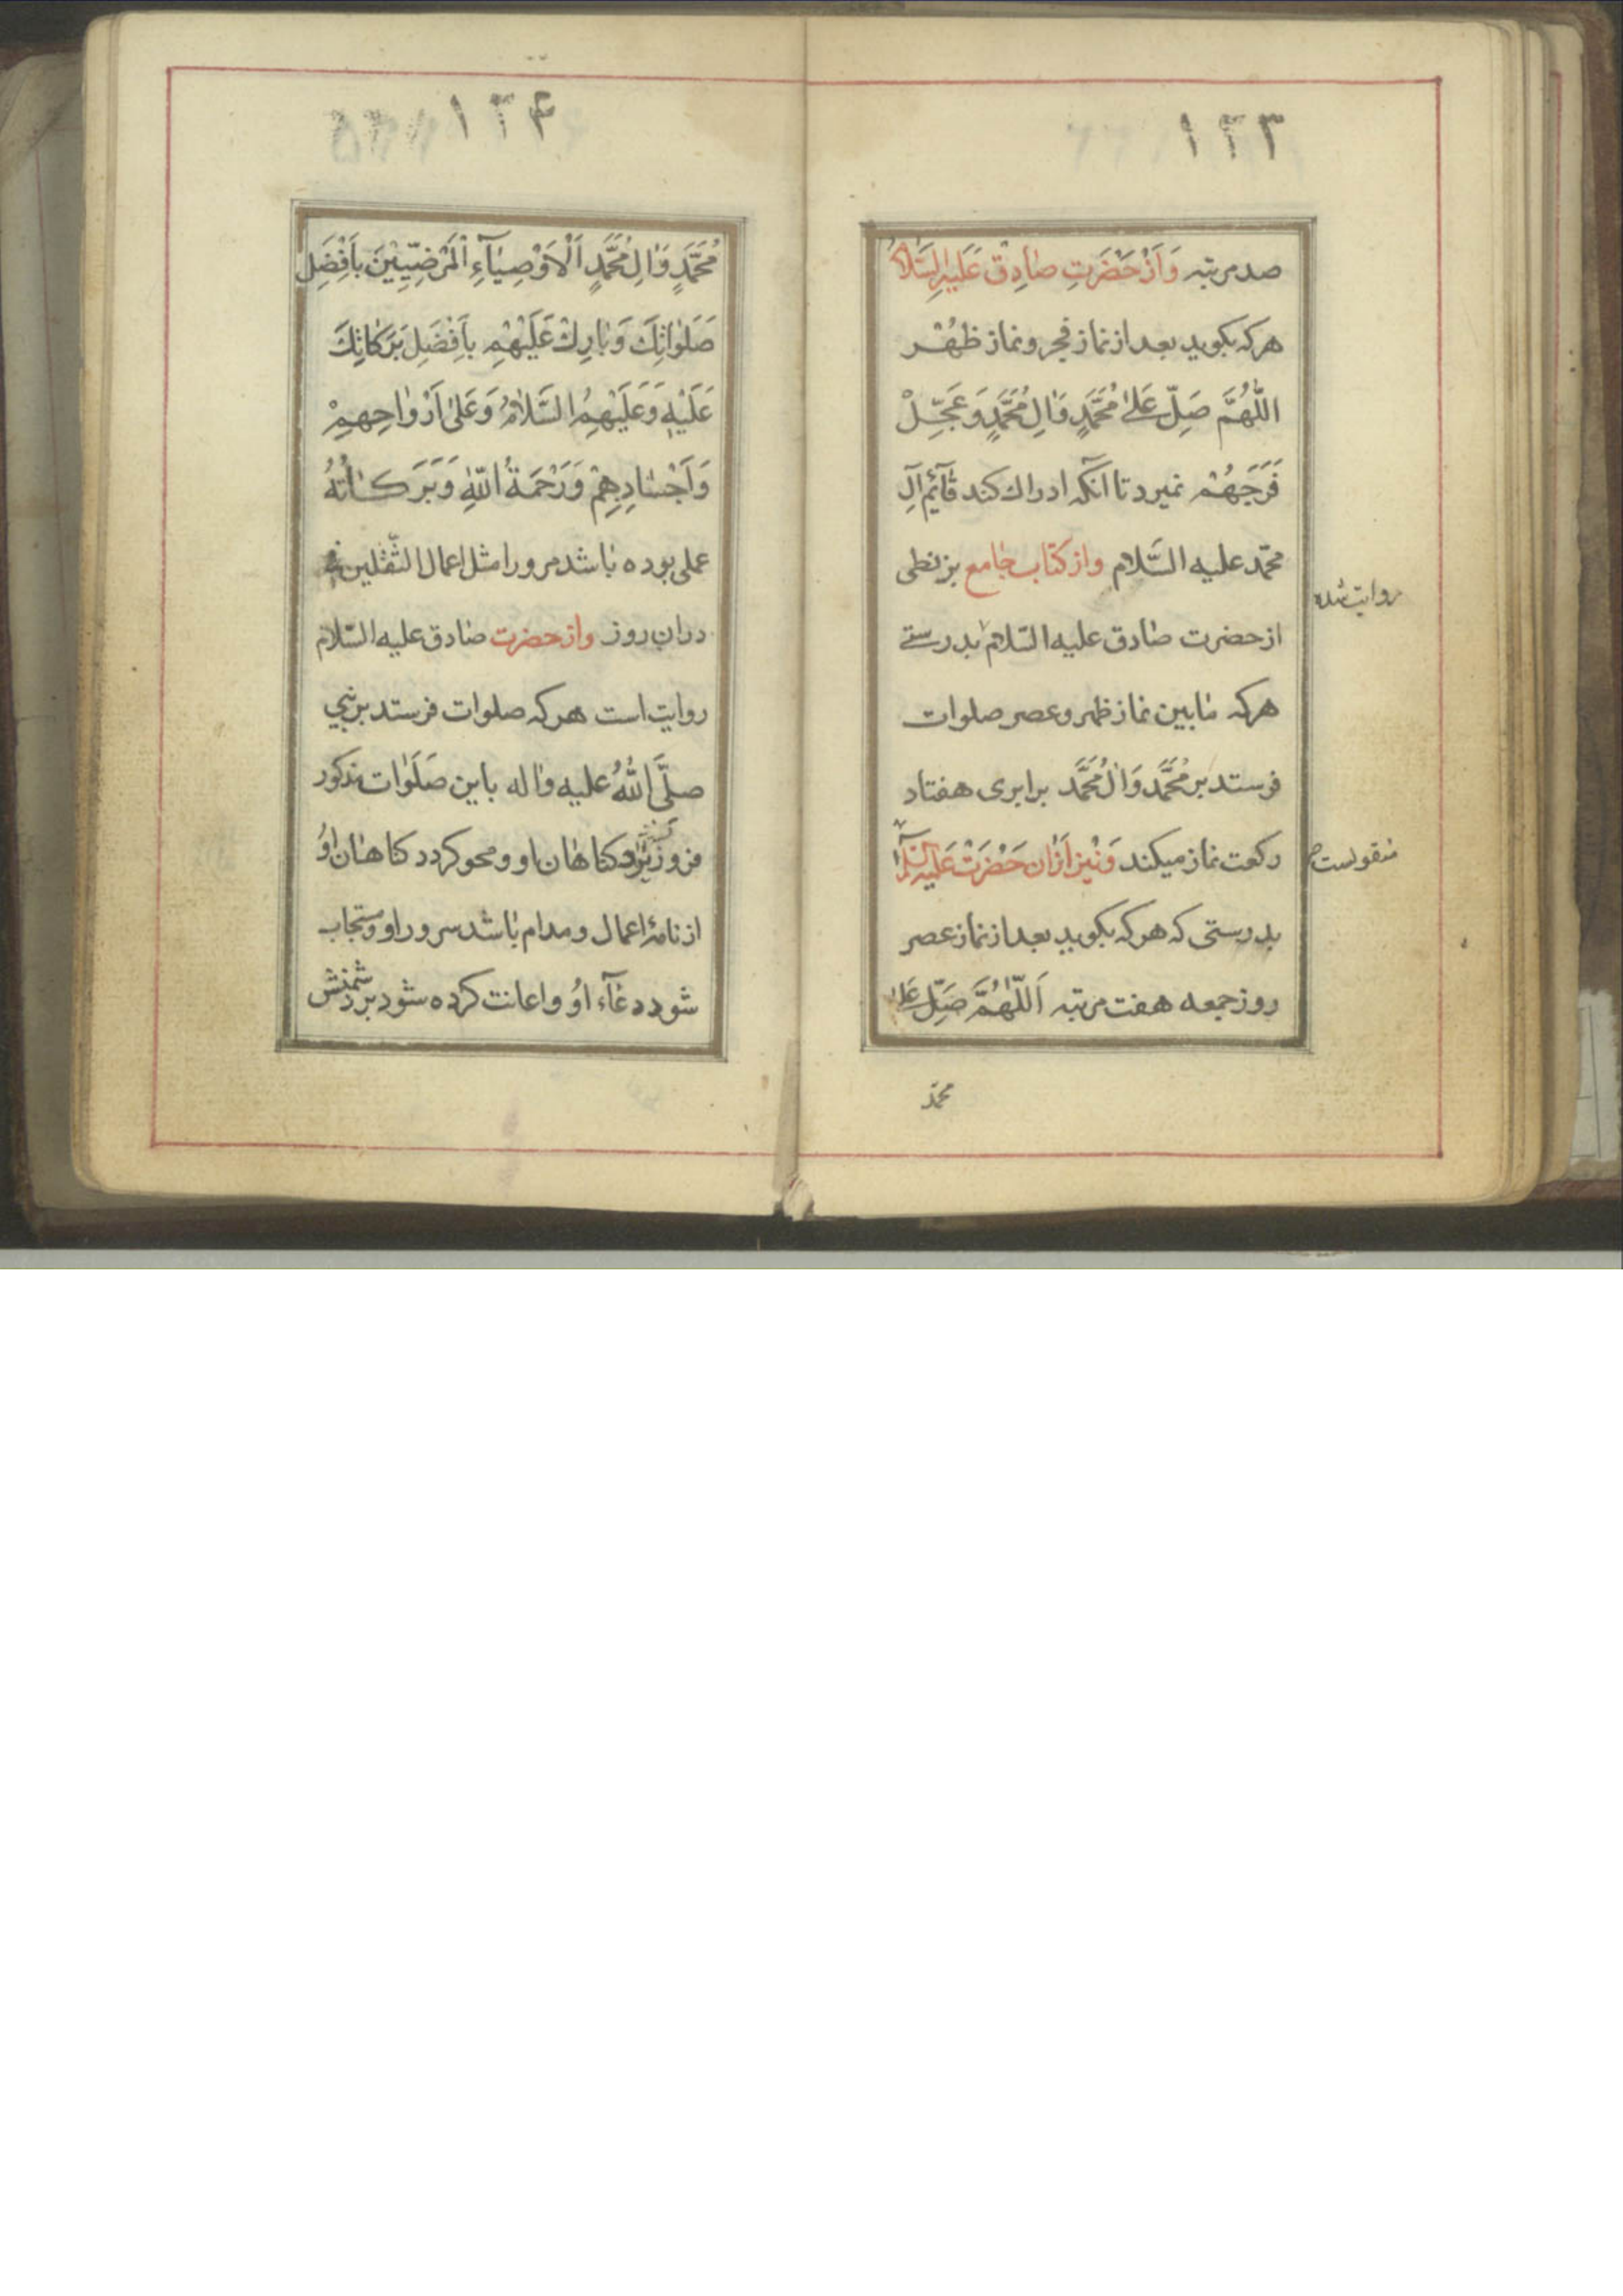 ۱۳۳
صد مرتبه وَاَزْ حَضْرَتِ صٰادِقْ عَلَيْهِ السَّلَامُ
هرکه بکوید بعد از نماز فجر و نماز ظُهْر
اَللّٰهُمَّ صَلِّ عَلىٰ مُحَمَّدٍ وَاٰلِ مُحَمَّدٍ وَعَجِّلْ
فَرَجَهُمْ نمیرد تا آنکه ادراك کند قٰآئم آلِ
محمّد علیه السَّلام واز کتاب جٰامع بزنطی
روایت شده
از حضرت صٰادق علیه السّلام بدرستے
هرکه مٰابین نماز ظهر و عصر صلوات
فرستد بر مُحَمَّد وَاٰل مُحَمَّد برابری هفتاد
رکعت نماز میکند وَنیز اَزْان حَضْرَتْ عَلَیْهِ السَّلام
منقولست
بدرستی که هرکه بکوید بعد از نماز عصر
روز جمعه هفت مرتبه اَللّٰهُمَّ صَلِّ عَلىٰ
محمّد
۱۳۴
مُحَمَّدٍ وَاٰلِ مُحَمَّدٍ اَلْاَوْصِيٰآءِ الْمَرْضِيّٖينَ بِاَفْضَلِ
صَلَوٰاتِكَ وَبٰارِكْ عَلَيْهِمْ بِاَفْضَلِ بَرَكٰاتِكَ
عَلَيْهِ وَعَلَيْهِمُ السَّلٰامُ وَعَلىٰ اَرْوٰاحِهِمْ
وَاَجْسٰادِهِمْ وَرَحْمَةُ اللّٰهِ وَبَرَكٰاتُهُ
عملی بوده بٰاشد مرورا مثل اعمال الثّقلین
دران روز واز حضرت صٰادق علیه السّلام
روایت است هرکه صلوات فرستد بر نبی
صلَّى اللّٰهُ علیه واٰله باین صَلَوٰات مذکور
فرو ریزد کناهٰان او و محو کردد کناهٰان اوُ
از نامۀ اعمال و مدام بٰاشد سرور او و مستجاب
شود دعٰآء اوُ و اعانت کرده شود بر دشمنش